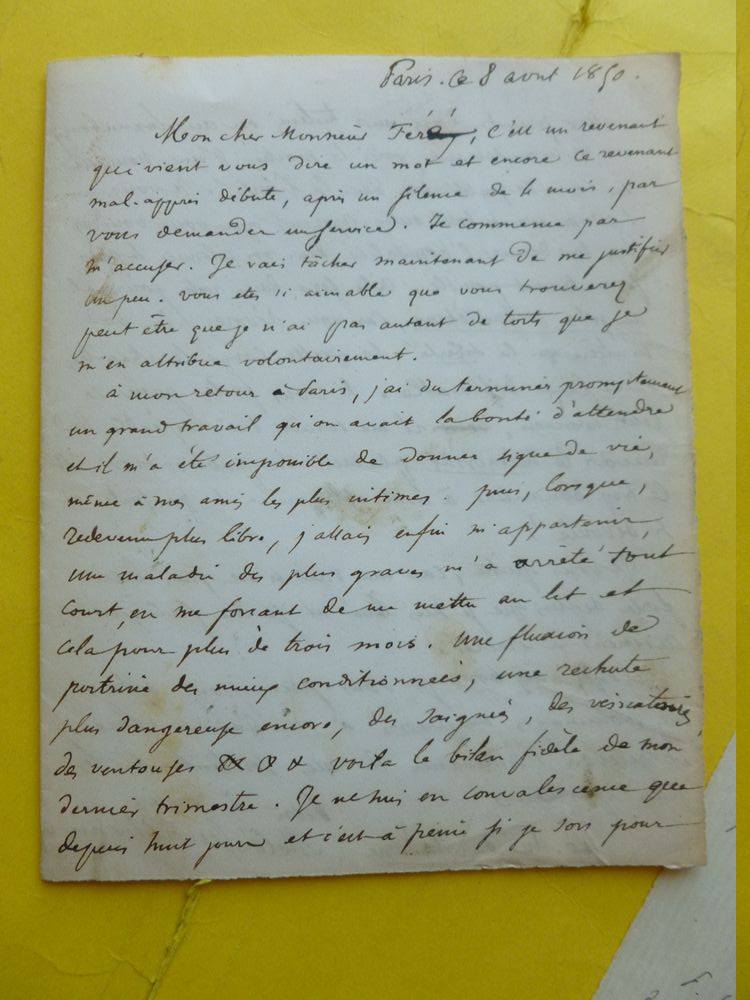 Paris. Ce 8 avril 1850.
Mon cher Monsieur Féréy, c'est un revenant
qui vient vous dire un mot et encore ce revenant
mal-appris débute, après un silence de 4 mois, par
vous demander un service. Je commence par
m'accuser. Je vais tâcher maintenant de me justifier
un peu. vous etes si aimable que vous trouverez
peut être que je n'ai pas autant de torts que je
m'en attribue volontairement.
à mon retour à Paris, j'ai du terminer promptement
un grand travail qu'on avait la bonté d'attendre
et il m'a été impossible de donner signe de vie,
même à mes amis les plus intimes. puis, lorsque,
redevenu plus libre, j'allais enfin m'appartenir,
une maladie des plus graves m'a arrêté tout
court, en me forcant de me mettre au lit et
cela pour plus de trois mois. une fluxion de
poitrine des mieux conditionnées, une rechute
plus dangereuse encore, des saignées, des vésicatoires
des ventouses & & & voila le bilan fidèle de mon
dernier trimestre. Je ne suis en convalescence que
depuis huit jours et c'est à peine si je sors pour